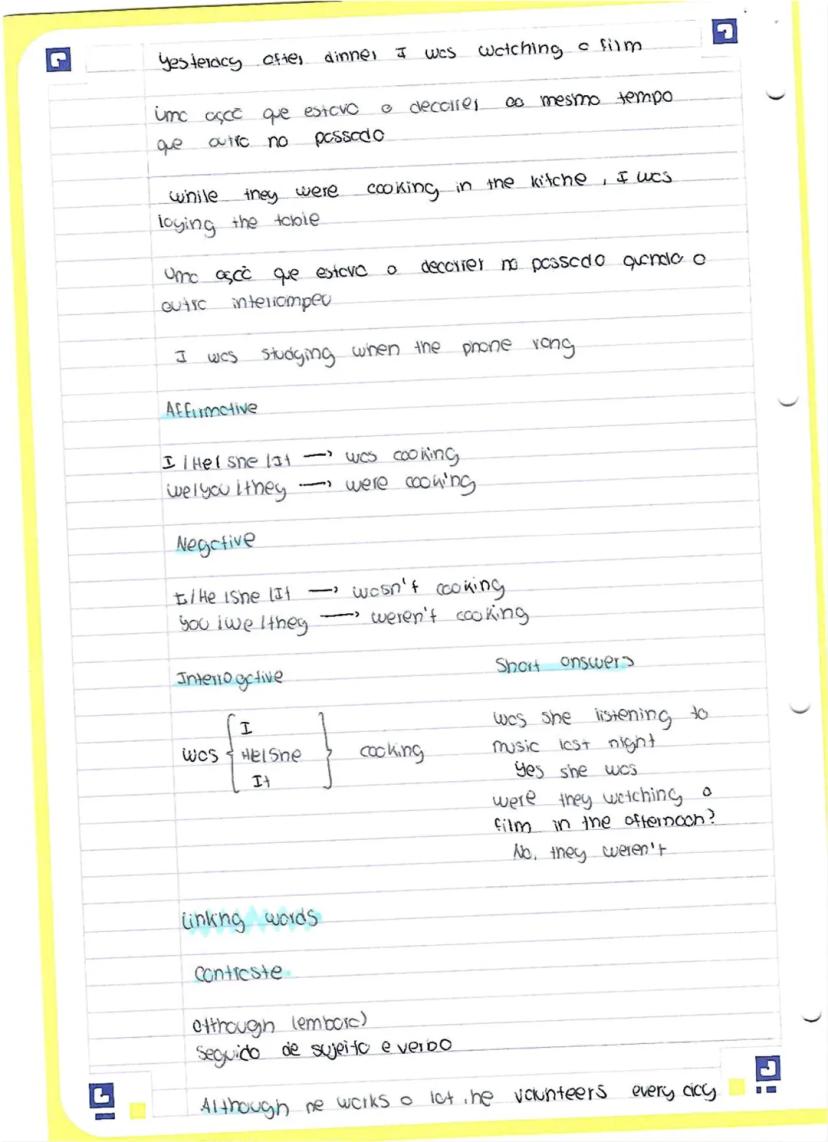 Yesterday after dinner I was watching a film
uma ação que estava a decorrer ao mesmo tempo
que outra no passado
while they were cooking in the kitche, I was
laying the table
Uma ação que estava a decorrer no passado quando a
outra interrompeu
I was studying when the phone rang
Affirmative
I / He / She / It → was cooking
we / you / they → were cooking
Negative
I / He / She / It → wasn't cooking
you / we / they → weren't cooking
Interrogative
was { I
He / She
It } cooking
Short answers
was she listening to
music last night
Yes she was
were they watching a
film in the afternoon?
No, they weren't
Linking words
contraste
although (embora)
seguido de sujeito e verbo
Although he works a lot, he volunteers every day